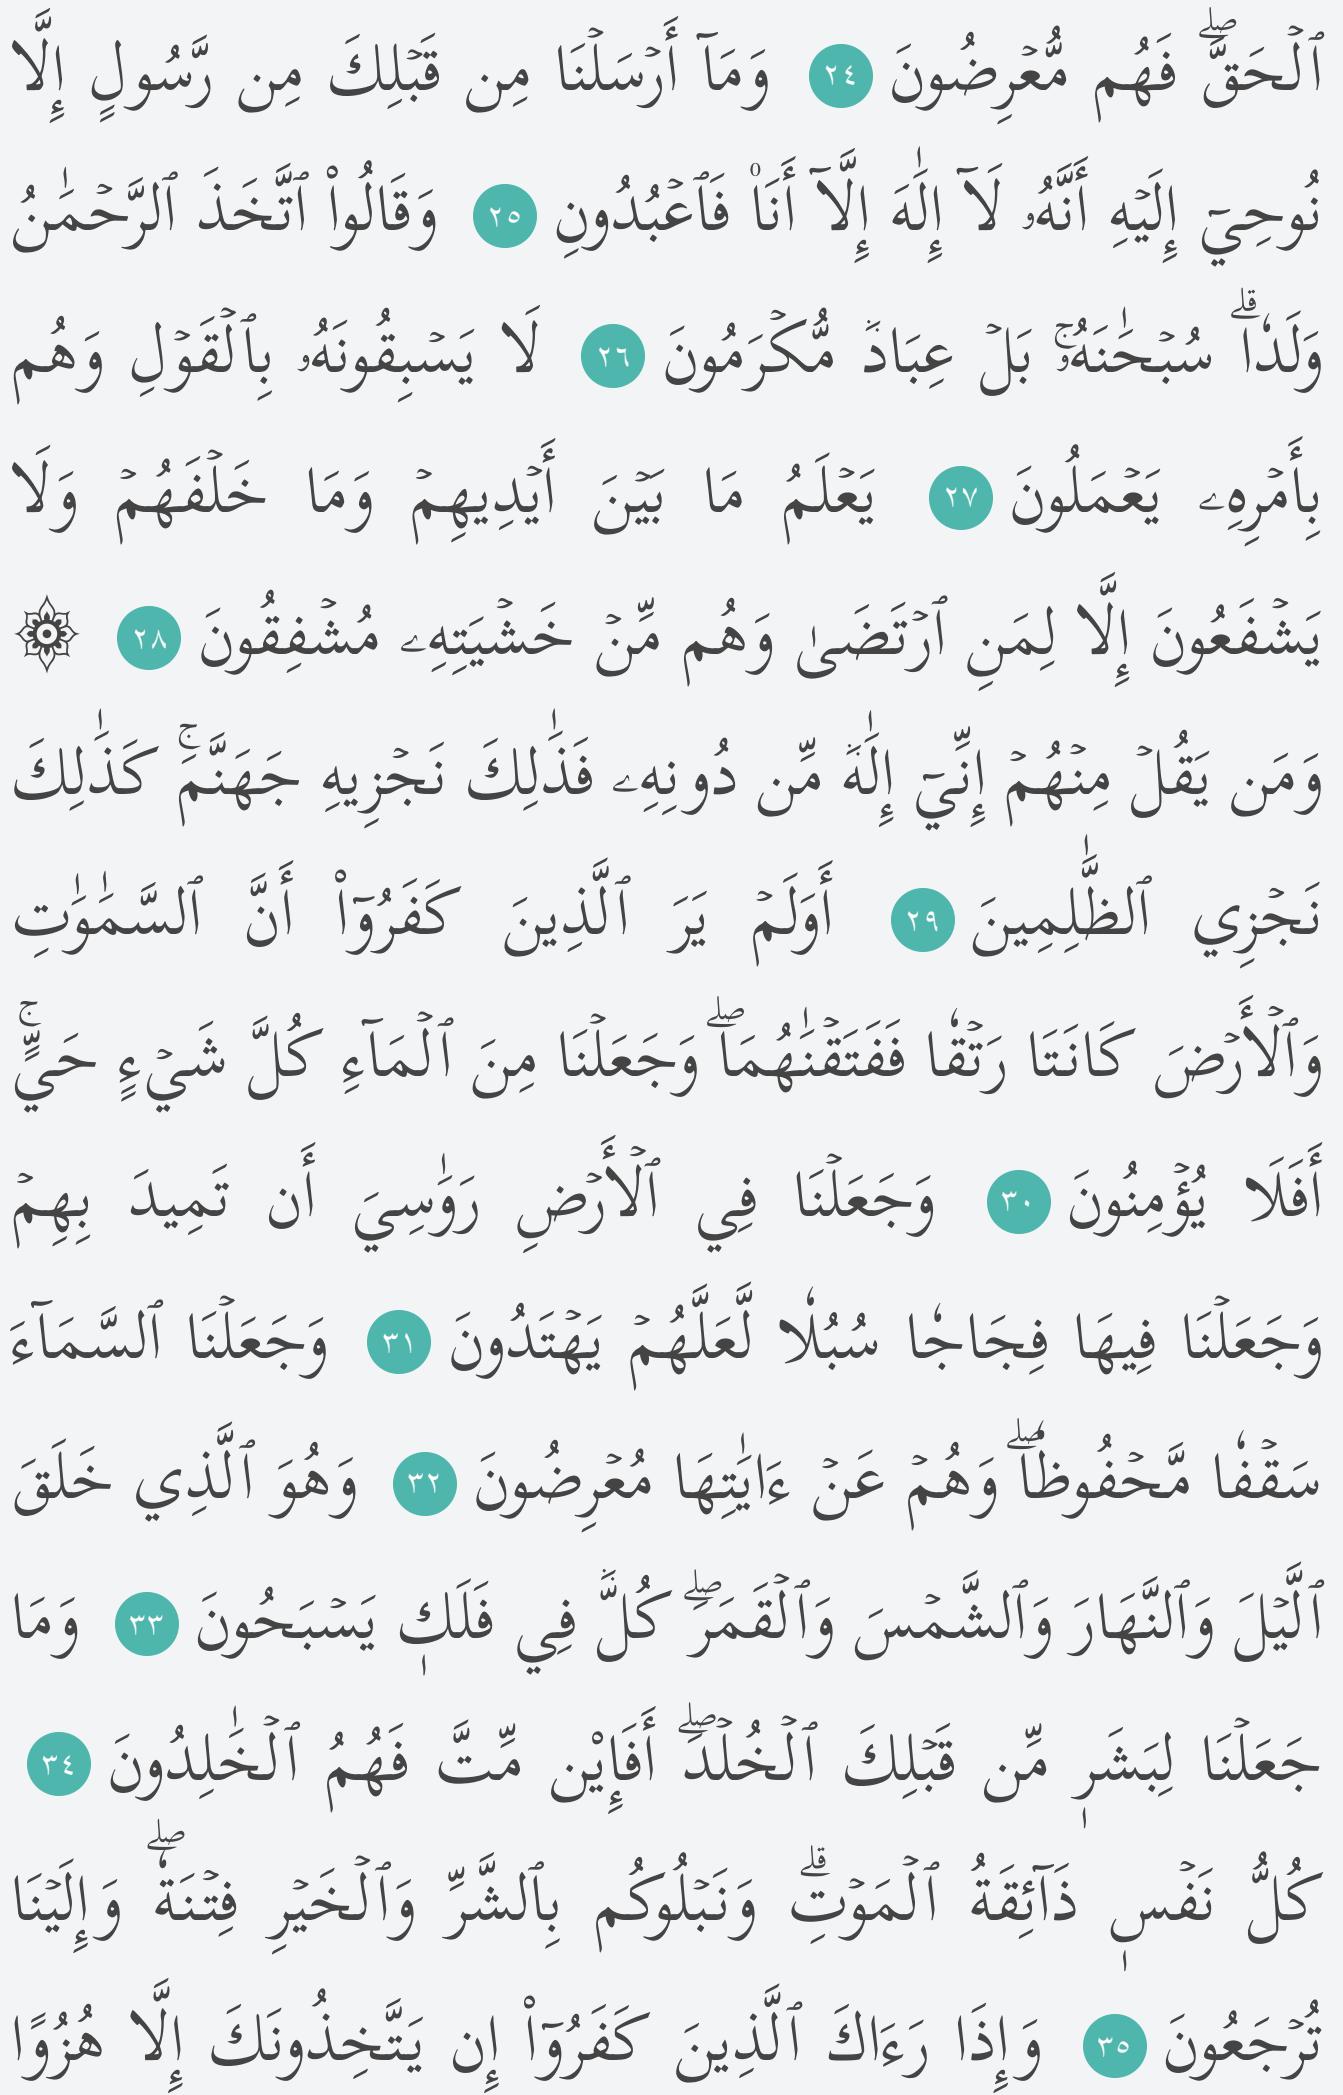 ٱلۡحَقَّۖ فَهُم مُّعۡرِضُونَ ٢٤ وَمَآ أَرۡسَلۡنَا مِن قَبۡلِكَ مِن رَّسُولٍ إِلَّا
نُوحِيٓ إِلَيۡهِ أَنَّهُۥ لَآ إِلَٰهَ إِلَّآ أَنَا۠ فَٱعۡبُدُونِ ٢٥ وَقَالُواْ ٱتَّخَذَ ٱلرَّحۡمَٰنُ
وَلَدٗاۗ سُبۡحَٰنَهُۥۚ بَلۡ عِبَادٞ مُّكۡرَمُونَ ٢٦ لَا يَسۡبِقُونَهُۥ بِٱلۡقَوۡلِ وَهُم
بِأَمۡرِهِۦ يَعۡمَلُونَ ٢٧ يَعۡلَمُ مَا بَيۡنَ أَيۡدِيهِمۡ وَمَا خَلۡفَهُمۡ وَلَا
يَشۡفَعُونَ إِلَّا لِمَنِ ٱرۡتَضَىٰ وَهُم مِّنۡ خَشۡيَتِهِۦ مُشۡفِقُونَ ٢٨ ۞
وَمَن يَقُلۡ مِنۡهُمۡ إِنِّيٓ إِلَٰهٞ مِّن دُونِهِۦ فَذَٰلِكَ نَجۡزِيهِ جَهَنَّمَۚ كَذَٰلِكَ
نَجۡزِي ٱلظَّٰلِمِينَ ٢٩ أَوَلَمۡ يَرَ ٱلَّذِينَ كَفَرُوٓاْ أَنَّ ٱلسَّمَٰوَٰتِ
وَٱلۡأَرۡضَ كَانَتَا رَتۡقٗا فَفَتَقۡنَٰهُمَاۖ وَجَعَلۡنَا مِنَ ٱلۡمَآءِ كُلَّ شَيۡءٍ حَيٍّۚ
أَفَلَا يُؤۡمِنُونَ ٣٠ وَجَعَلۡنَا فِي ٱلۡأَرۡضِ رَوَٰسِيَ أَن تَمِيدَ بِهِمۡ
وَجَعَلۡنَا فِيهَا فِجَاجٗا سُبُلٗا لَّعَلَّهُمۡ يَهۡتَدُونَ ٣١ وَجَعَلۡنَا ٱلسَّمَآءَ
سَقۡفٗا مَّحۡفُوظٗاۖ وَهُمۡ عَنۡ ءَايَٰتِهَا مُعۡرِضُونَ ٣٢ وَهُوَ ٱلَّذِي خَلَقَ
ٱلَّيۡلَ وَٱلنَّهَارَ وَٱلشَّمۡسَ وَٱلۡقَمَرَۖ كُلّٞ فِي فَلَكٖ يَسۡبَحُونَ ٣٣ وَمَا
جَعَلۡنَا لِبَشَرٖ مِّن قَبۡلِكَ ٱلۡخُلۡدَۖ أَفَإِيْن مِّتَّ فَهُمُ ٱلۡخَٰلِدُونَ ٣٤
كُلُّ نَفۡسٖ ذَآئِقَةُ ٱلۡمَوۡتِۗ وَنَبۡلُوكُم بِٱلشَّرِّ وَٱلۡخَيۡرِ فِتۡنَةٗۖ وَإِلَيۡنَا
تُرۡجَعُونَ ٣٥ وَإِذَا رَءَاكَ ٱلَّذِينَ كَفَرُوٓاْ إِن يَتَّخِذُونَكَ إِلَّا هُزُوًا